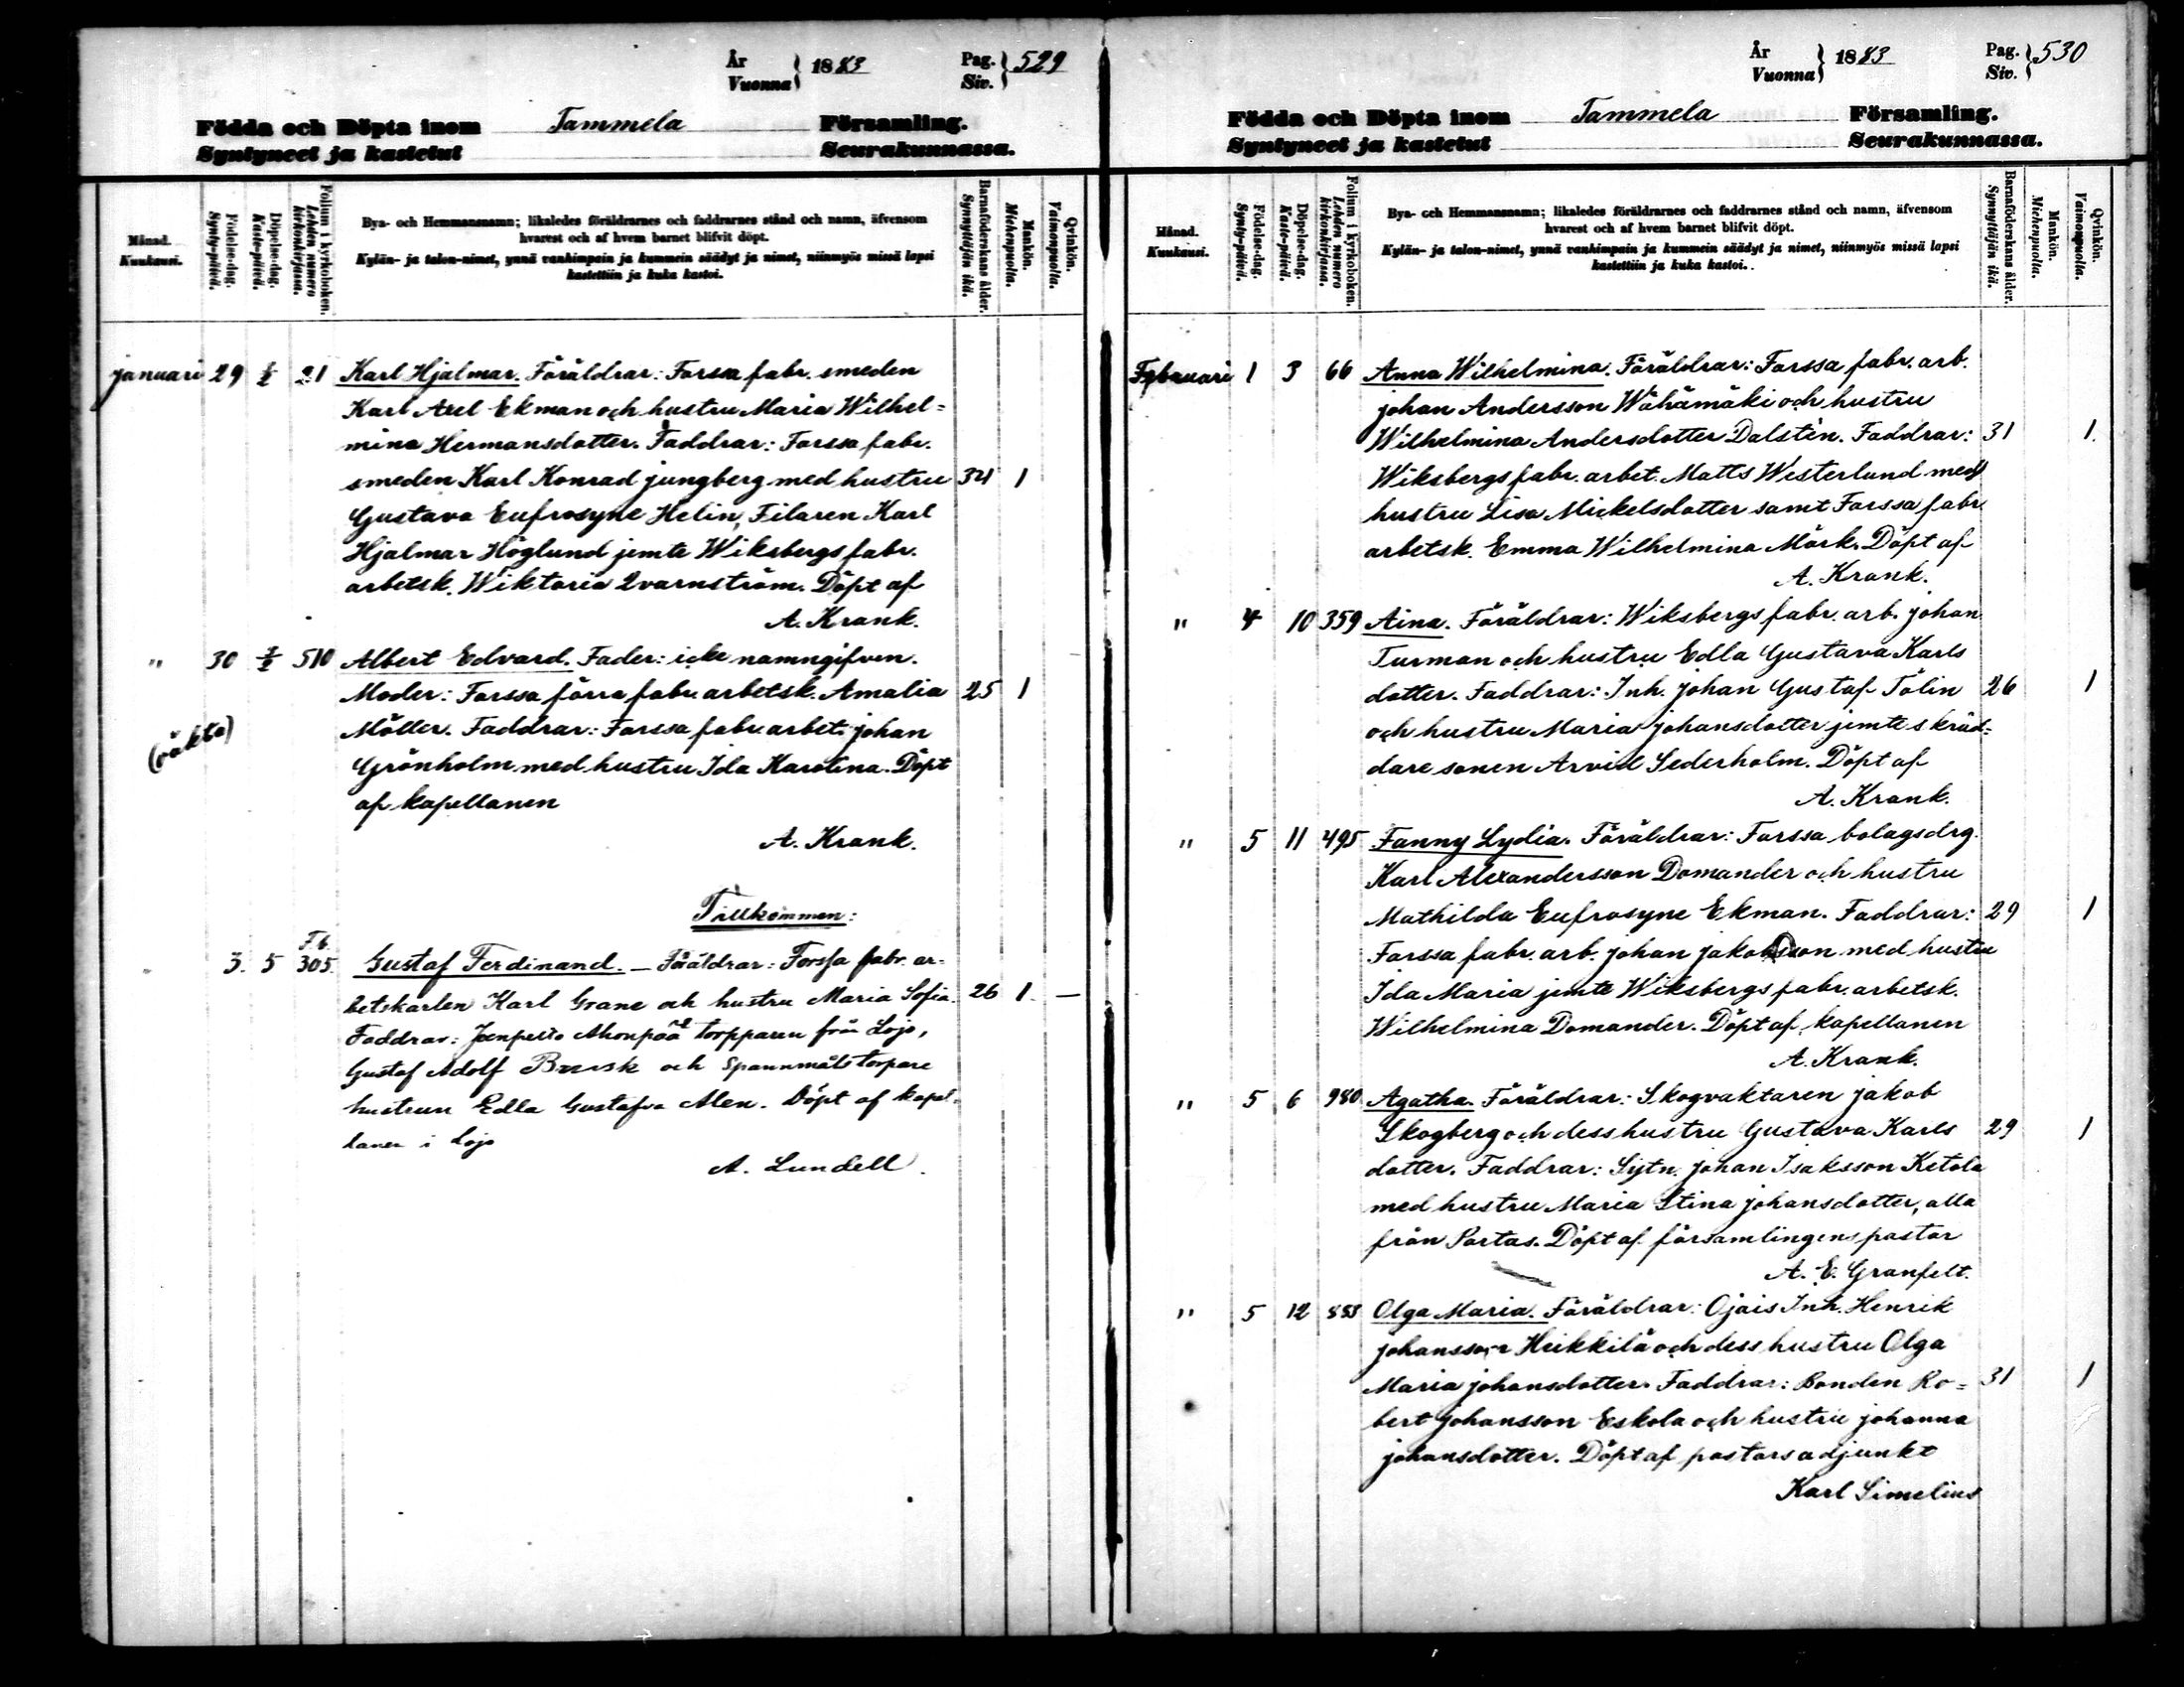 År
Vuonna } 1883 Pag.
Siv. } 529
Födda och Döpta inom Tammela Församling.
Syntyneet ja kastetut Seurakunnassa.
Månad.
Kuukausi.
Födelse-dag.
Synty-päivä.
Döpelse-dag.
Kaste-päivä.
Folium i kyrkoboken.
Lehden numero kirkonkirjassa.
Bya- och Hemmansnamn; likaledes föräldrarnes och faddrarnes stånd och namn, äfvensom
hvarest och af hvem barnet blifvit döpt.
Kylän- ja talon-nimet, ynnä vanhimpain ja kummein säädyt ja nimet, niinmyös missä lapsi
kastettiin ja kuka kastoi.
Barnaföderskans ålder.
Synnyttäjän ikä.
Mankön.
Miehenpuolta.
Qvinkön.
Vaimonpuolta.
januari 29 21 Karl Hjalmar. Föräldrar: Forssa fabr. smeden
Karl Axel Ekman och hustru Maria Wilhel=
mina Hermansdotter. Faddrar: Forssa fabr.
smeden Karl Konrad jungberg med hustru 34 1
Gustava Eufrosyne Helin, Filaren Karl
Hjalmar Höglund jemte Wiksbergs fabr.
arbetsk. Wiktoria Qvarnström. Döpt af
A. Krank.
" 30 510 Albert Edvard. Fader: icke namngifven.
Moder: Forssa förra fabr. arbetsk. Amalia 25 1
Möller. Faddrar: Forssa fabr. arbet. johan
(oäkta)
Grönholm med hustru Ida Karolina. Döpt
af kapellanen
A. Krank.
Tillkommen:
" 3. 5 305. Gustaf Ferdinand. — Föräldrar: Forssa fabr. ar-
betskarlen Karl Grane och hustru Maria Sofia. 26 1. —
Faddrar: Ahonpää torpparen från Lojo,
Gustaf Adolf och Spannmåls torpare
hustrun Edla Gustafva Alen. Döpt af kapel-
lanen i Lojo
A. Lundell.
År
Vuonna } 1883 Pag.
Siv. } 530
Födda och Döpta inom Tammela Församling.
Syntyneet ja kastetut Seurakunnassa.
Månad.
Kuukausi.
Födelse-dag.
Synty-päivä.
Döpelse-dag.
Kaste-päivä.
Folium i kyrkoboken.
Lehden numero kirkonkirjassa.
Bya- och Hemmansnamn; likaledes föräldrarnes och faddrarnes stånd och namn, äfvensom
hvarest och af hvem barnet blifvit döpt.
Kylän- ja talon-nimet, ynnä vanhimpain ja kummein säädyt ja nimet, niinmyös missä lapsi
kastettiin ja kuka kastoi.
Barnaföderskans ålder.
Synnyttäjän ikä.
Mankön.
Miehenpuolta.
Qvinkön.
Vaimonpuolta.
Februari 1 3 66 Anna Wilhelmina. Föräldrar: Forssa fabr. arb.
johan Andersson Wähämäki och hustru
Wilhelmina Andersdotter Dalstén. Faddrar: 31 1.
Wiksbergs fabr. arbet. Matts Westerlund med
hustru Lisa Mickelsdotter samt Forssa fabr.
arbetsk. Emma Wilhelmina Mörk. Döpt af
A. Krank.
" 4 10 359 Aina. Föräldrar: Wiksbergs fabr. arb. johan
Turman och hustru Edla Gustava Karls
dotter. Faddrar: Inh. johan Gustaf Tölin 26 1
och hustru Maria johansdotter jemte skräd=
dare sonen Arvid Sederholm. Döpt af
A. Krank.
" 5 11 495 Fanny Lydia. Föräldrar: Forssa bolagsdrg.
Karl Alexandersson Domander och hustru
Mathilda Eufrosyne Ekman. Faddrar: 29 1
Forssa fabr. arb. johan jakobsson med hustru
Ida Maria jemte Wiksbergs fabr. arbetsk.
Wilhelmina Domander. Döpt af kapellanen
A. Krank.
" 5 6 980 Agatha. Föräldrar: Skogvaktaren jakob
Skogberg och dess hustru Gustava Karls 29 1
dotter. Faddrar: Sytn. johan Isaksson Ketola
med hustru Maria Stina johansdotter, alla
från Portas. Döpt af församlingens pastor
A. E. Granfelt.
" 5 12 853 Olga Maria. Föräldrar: Ojais Inh. Henrik
johansson Heikkilä och dess hustru Olga
Maria johansdotter. Faddrar: Bonden Ro= 31 1
bert johansson Eskola och hustru johanna
johansdotter. Döpt af pastorsadjunkt
Karl Simelius